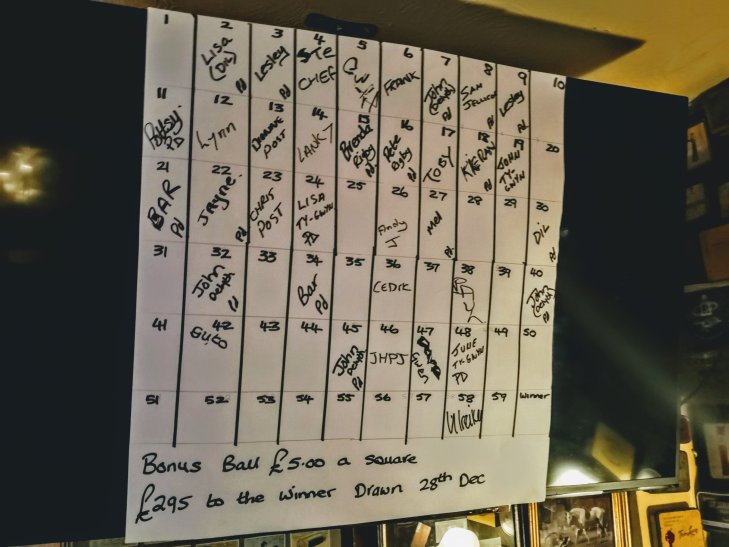 1 2 3 4 5 6 7 8 9 10
Lisa (Dil) Lesley Pd STE CHEF FRANK John Pd SAM Pd Lesley Pd
11 12 13 14 15 16 17 18 19 20
PD Lynn POST Brenda Rigby Pd Pete Pd TOBY KIERAN Pd JOHN TY-GWYN Pd
21 22 23 24 25 26 27 28 29 30
BAR Pd Jayne Pd CHRIS POST LISA TY-GWYN PD Andy J Mel Pd DIL Pd
31 32 33 34 35 36 37 38 39 40
John Pd Bar Pd CEDIK John Pd
41 42 43 44 45 46 47 48 49 50
Guto John Pd JHPJ Gwen JUNE TY-GWYN PD
51 52 53 54 55 56 57 58 59 Winner
Ulrike
Bonus Ball £5.00 a square
£295 to the winner Drawn 28th Dec